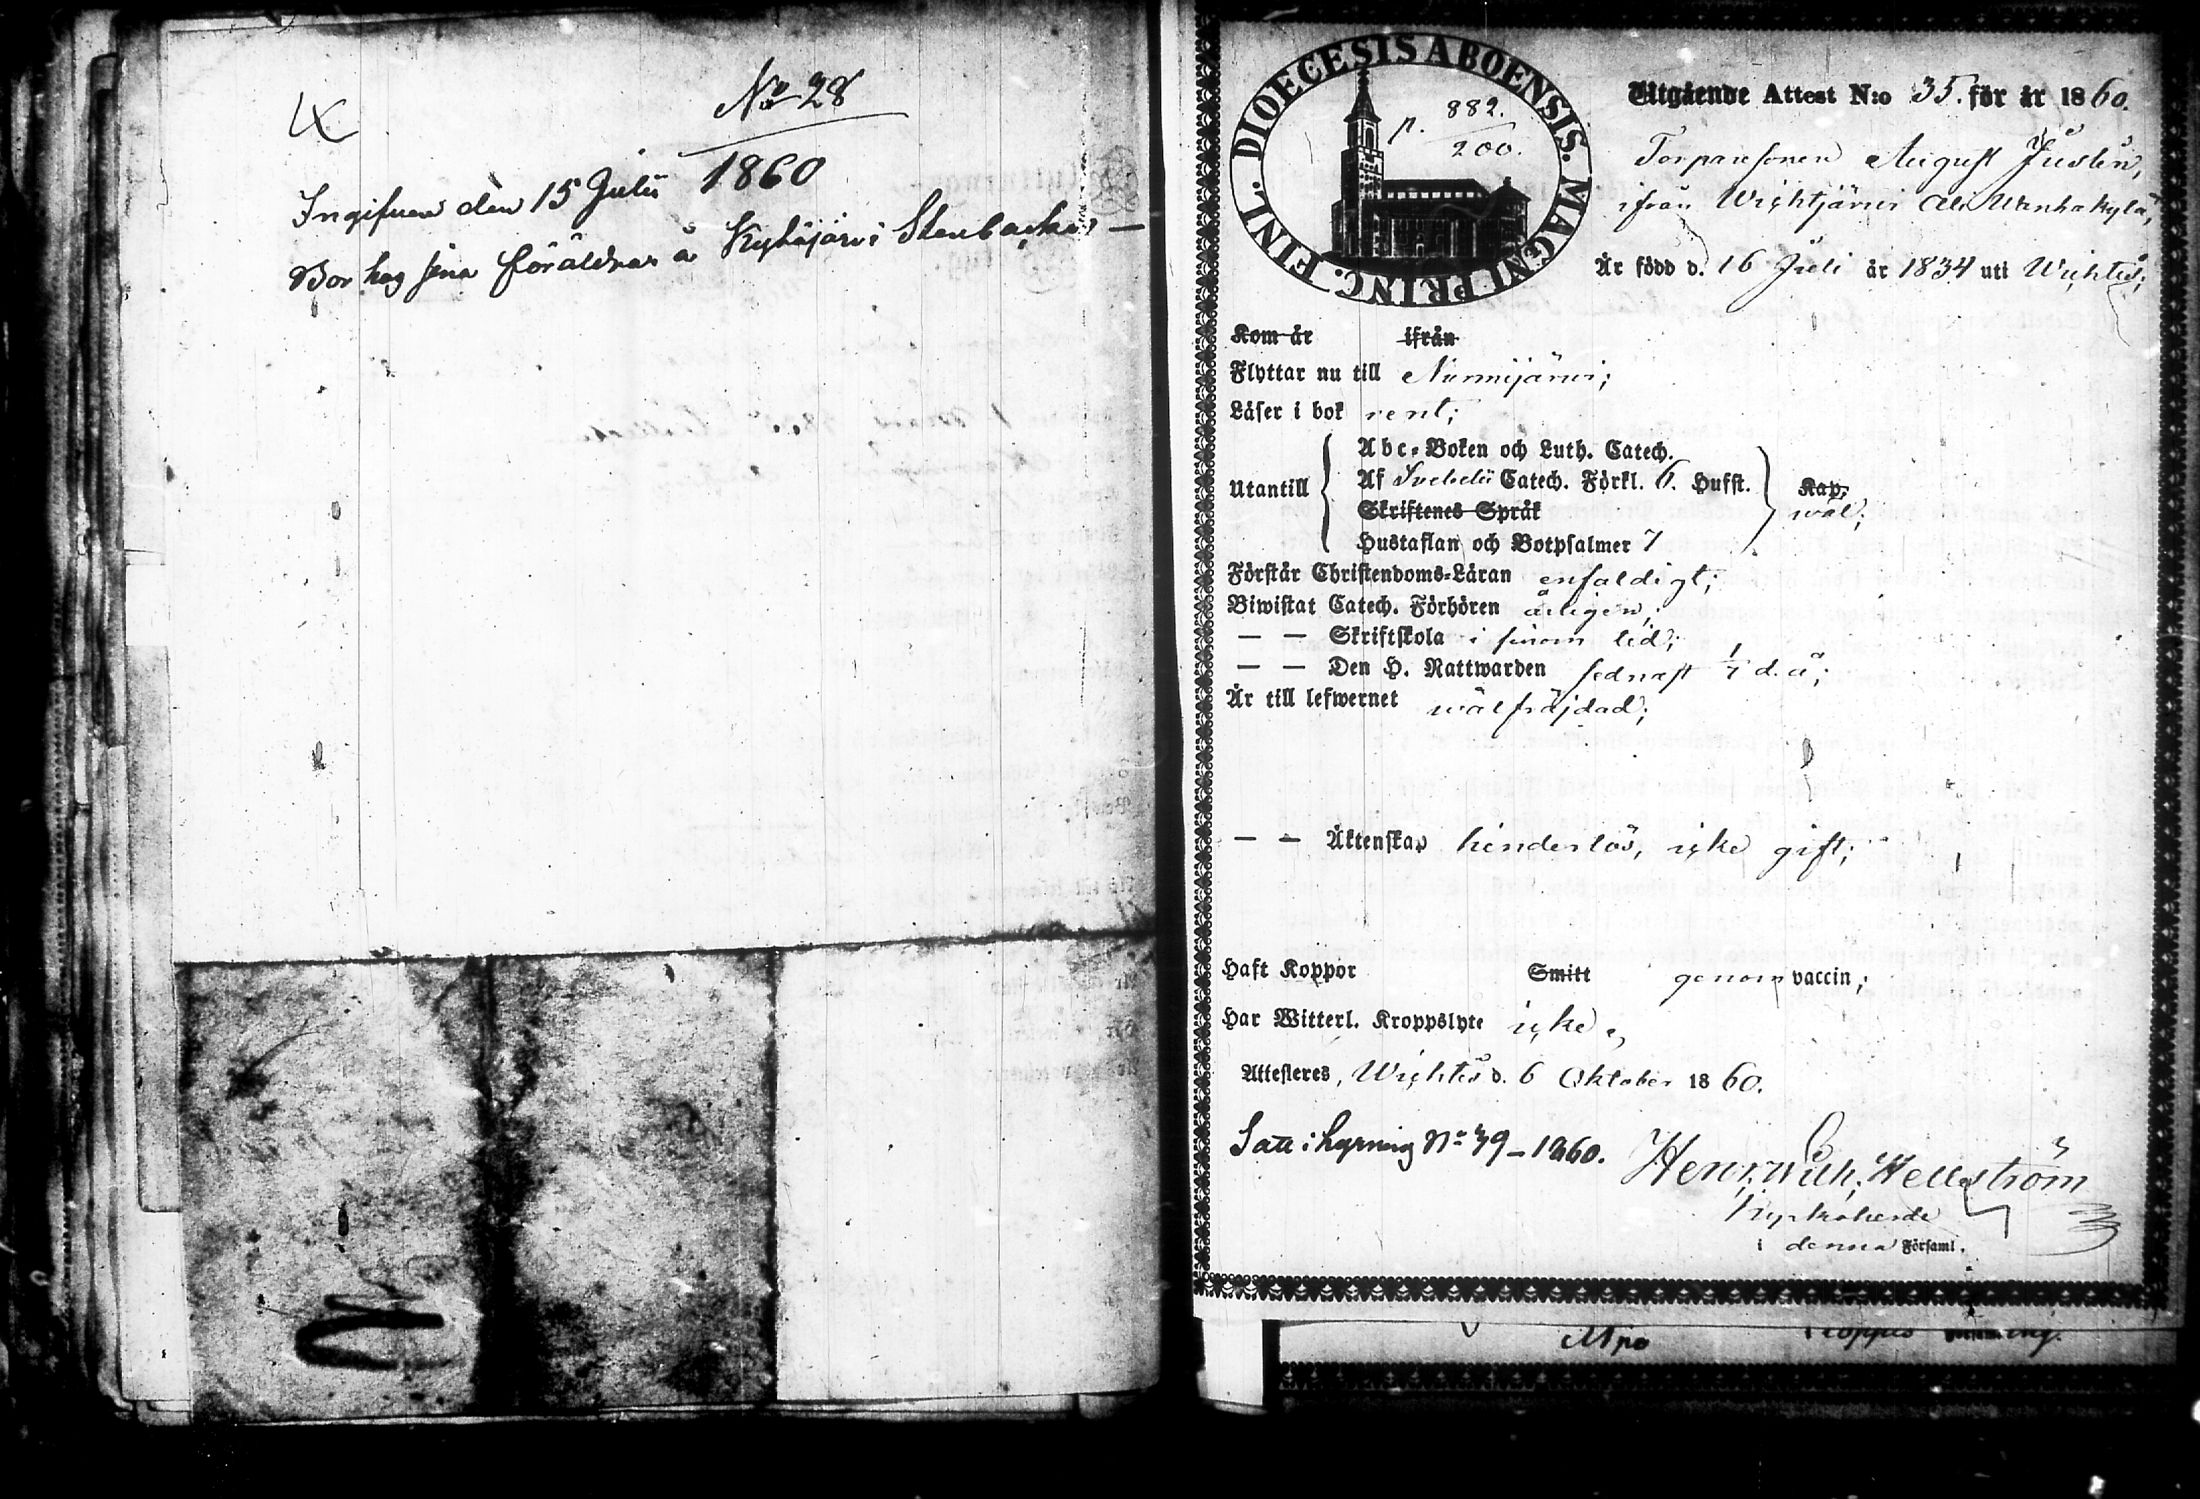 No 28
1860
Ingifven den 15 Julii
Bor hos sina föräldrar å Kytäjärvi Stenbacka —
DIOECESIS ABOENSIS. MAGNI PRINC. FINL.
p. 882.
200.
Utgående Attest N:o 35. för år 1860.
Torparesonen August Justén,
ifrån Wichtjärvi Ali Wanhakylä,
Är född d. 16 Juli år 1834 uti Wichtis;
Kom år ifrån
Flyttar nu till Nurmijärvi;
Läser i bok rent;
Abc-Boken och Luth. Catech.
Utantill Af Svebelii Catech. Förkl. 6. Hufst. Kap.
Skriftenes Språk wäl;
Hustaflan och Botpsalmer 7
Förstår Christendoms-Läran enfaldigt;
Biwistat Catech. Förhören årligen;
— — Skriftskola i sinom tid;
— — Den H. Nattwarden sednast 1/7 d. å;
Är till lefwernet wälfräjdad;
— — Äktenskap hinderlös, icke gift;
Haft Koppor Smitt genom vaccin;
Har Witterl. Kroppslyte icke,
Attesteres, Wichtis d. 6 Oktober 1860.
Satt i lysning No 39 – 1860.
Henr. Wilh. Hellström
Kyrkoherde
i denna Församl.